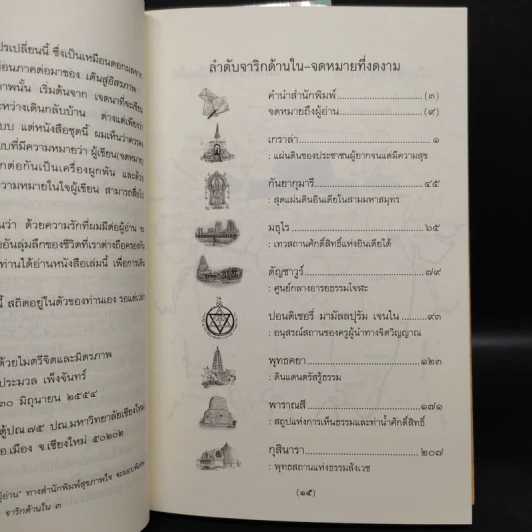 ปรเปลี่ยนนี้ ซึ่งเป็นเหมือนดอกผลจาก
อนภาคต่อมาของ เดินสู่อิสรภาพ
าพนั้น เริ่มต้นจาก เจตนาที่จะเขียน
ะหว่างเดินกลับบ้าน ต่างแต่เพียงว่า
บบ แต่หนังสือชุดนี้ ผมเห็นว่าควรคง
บบที่มีความหมายว่า ผู้เขียน(จดหมาย)
กต่อกันเป็นเครื่องผูกพัน และด้วย
วามหมายในใจผู้เขียน สามารถสื่อไป
นว่า ด้วยความรักที่ผมมีต่อผู้อ่าน ขอ
งอันลุ่มลึกของชีวิตที่เราต่างถือครองกัน
ท่านได้อ่านหนังสือเล่มนี้ เพื่อการเดิน
นี้ สถิตอยู่ในตัวของท่านเอง รอแต่เวลา
ด้วยไมตรีจิตและมิตรภาพ
ประมวล เพ็งจันทร์
๓๐ มิถุนายน ๒๕๕๔
ตู้ปณ.๗๕ ปณ.มหาวิทยาลัยเชียงใหม่
อ.เมือง จ.เชียงใหม่ ๕๐๒๐๒
ู้อ่าน" ทางสำนักพิมพ์สุขภาพใจ จะมอบพิเศษ
จาริกด้านใน ๓
ลำดับจาริกด้านใน-จดหมายที่งดงาม
คำนำสำนักพิมพ์ (๓)
จดหมายถึงผู้อ่าน (๙)
เกราล่า ๑
: แผ่นดินของประชาชนผู้ยากจนแต่มีความสุข
กันยากุมารี ๔๕
: สุดแผ่นดินอินเดียในสามมหาสมุทร
มธุไร ๖๕
: เทวสถานศักดิ์สิทธิ์แห่งอินเดียใต้
ตัญชาวูร์ ๗๙
: ศูนย์กลางอารยธรรมโจฬะ
ปอนดิเชอรี่ มามัลลปุรัม เจนไน ๙๓
: อนุสรณ์สถานของครูผู้นำทางจิตวิญญาณ
พุทธคยา ๑๒๓
: ดินแดนตรัสรู้ธรรม
พาราณสี ๑๗๑
: สถูปแห่งการเห็นธรรมและท่าน้ำศักดิ์สิทธิ์
กุสินารา ๒๐๗
: พุทธสถานแห่งธรรมสังเวช
(๑๕)